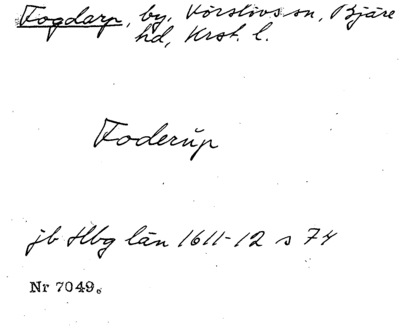 Fogdarp, by, Västivs sn, Bjäre
hd, Krst. l.
Foderup
jb Hbg län 1611-12 s 74
Nr 7049.